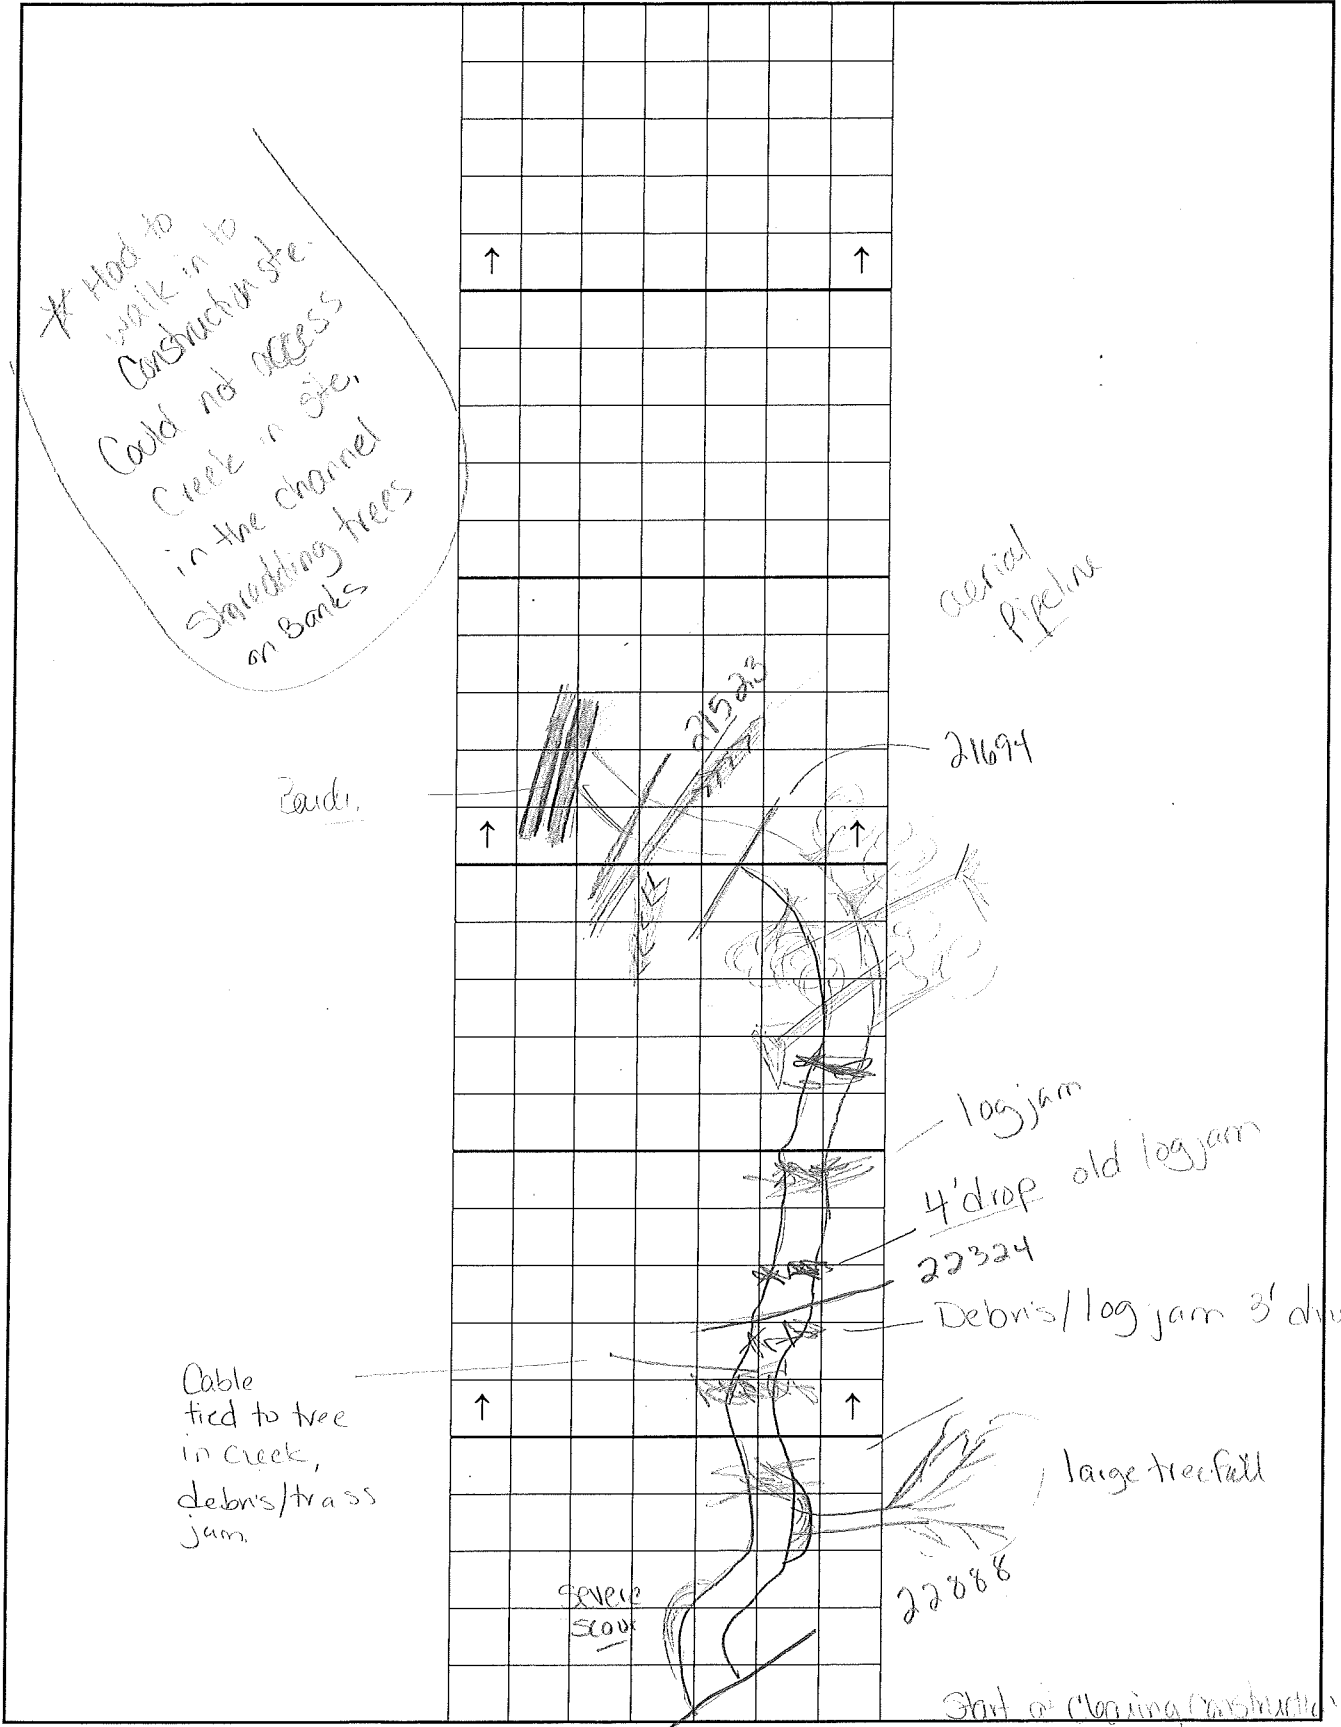 * Had to
walk in to
Construction site.
Could not access
Creek in site,
in the channel
Shredding trees
on Banks
aerial
Pipeline
21523
21694
log jam
4' drop old log jam
22324
Debris/log jam 3'
Cable
tied to tree
in creek,
debris/trass
jam.
large treefall
22888
Severe
scour
Start of Clearing Construction